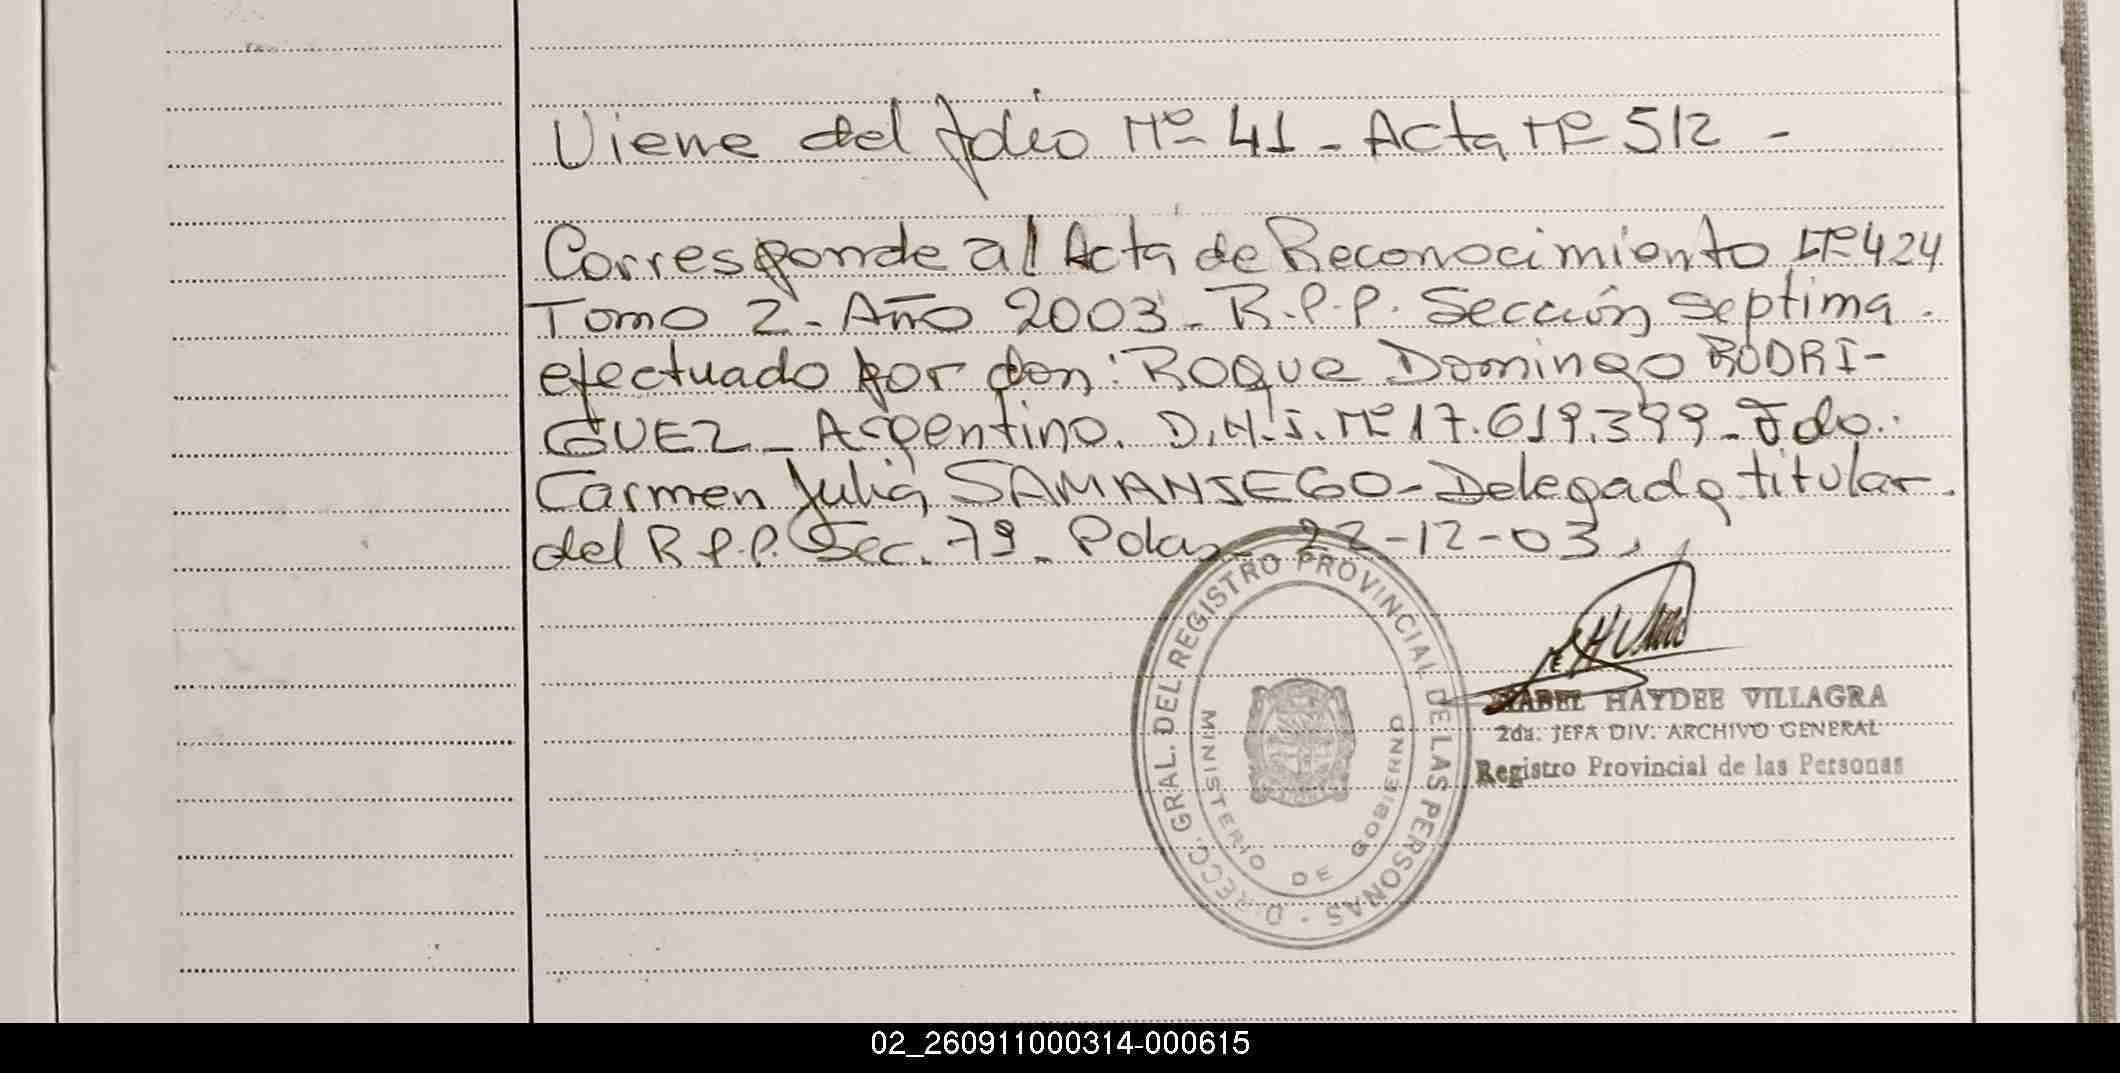 Viene del folio Nº 41 - Acta Nº 512 -
Corresponde al Acta de Reconocimiento Nº 424
Tomo 2 - Año 2003 - R.P.P. Sección septima.
efectuado por don: Roque Domingo RODRI-
GUEZ - Argentino. D.N.I. Nº 17.619.399 - Fdo.:
Carmen Julia SAMANIEGO - Delegada titular.
del R.P.P. Sec. 7ª - Pdas - 22-12-03.
DIRECC. GRAL. DEL REGISTRO PROVINCIAL DE LAS PERSONAS -
MINISTERIO DE GOBIERNO
ISABEL HAYDEE VILLAGRA
2da. JEFA DIV. ARCHIVO GENERAL
Registro Provincial de las Personas
02_260911000314-000615